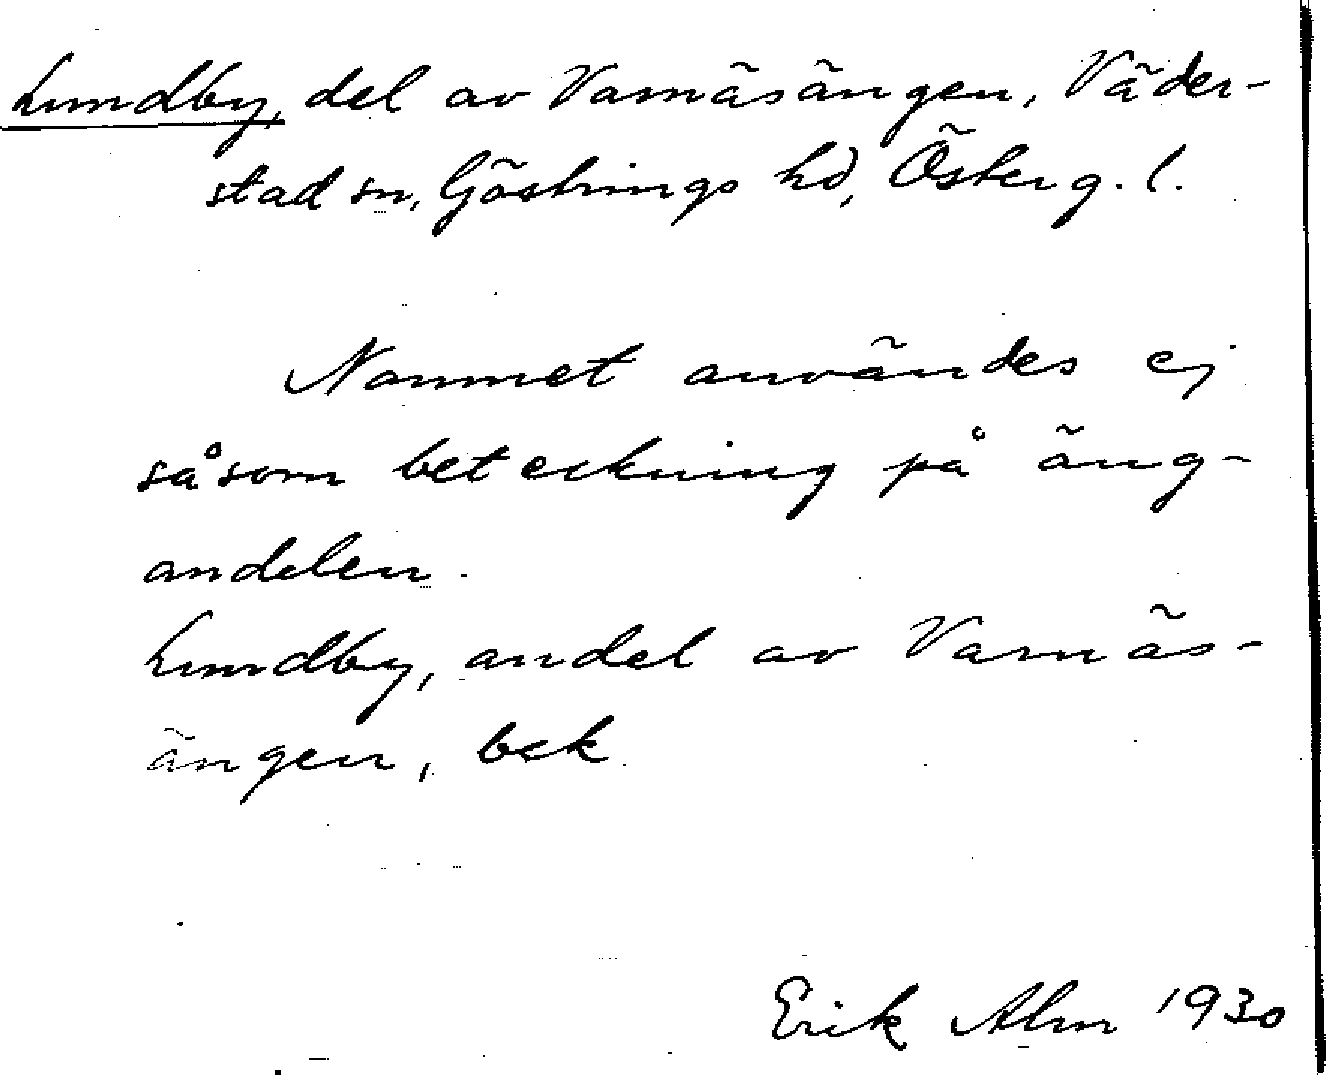 Lundby, del av Varnäsängen, Väder-
stad sn, Göstrings hd, Österg. l.
Namnet användes ej
såsom beteckning på äng-
andelen.
Lundby, andel av Varnäs-
ängen, bek
Erik Alm 1930